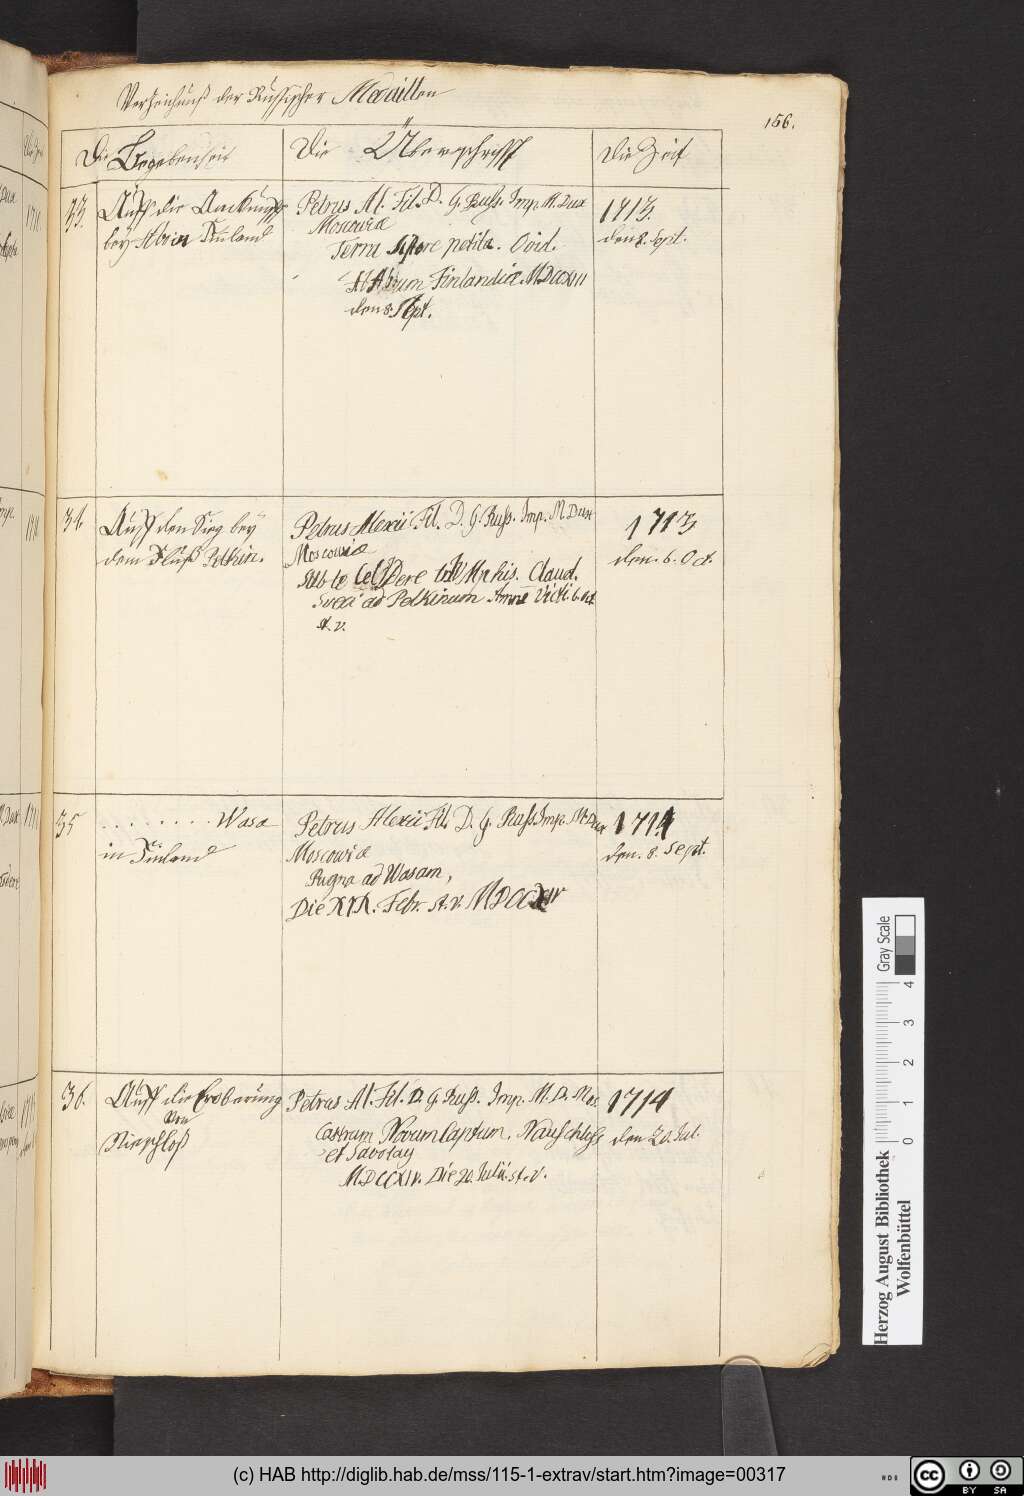 Verzeichnuß der Russischer Medaillen
156.
Die Begebenheit
Die Überschrifft
Die Zeit
33.
Auff die
bey Abo in Finland
Petrus Al. Fil. D. G. Russ. Imp. M. Dux
Moscoviæ
Terra petita. Ovid.
Ad Aboum Finlandiæ. MDCCXIII
den 8. Sept.
1713.
den 8. Sept.
34.
Auff den Sieg bey
dem Fluß Pelkin.
Petrus Alexii Fil. D. G. Russ. Imp. M Dux
Moscoviæ
Claud.
Sveci ad Pelkinum Amne Victi. 6. Oct
st. v.
1713
den. 6. Oct.
35
. . . . . . . . Wasa
in Finland
Petrus Alexii Fil. D. G. Russ Imp. M. Dux
Moscoviæ
Pugna ad Wasam,
Die XIX. Febr. st. v. MDCCXIV
1714
den. 8. Sept.
36.
Auff die Eroberung
von
Niesschloß
Petrus Al. Fil. D. G. Russ. Imp. M. D. Mos.
Castrum Novum Captum.
et
MDCCXIV. Die 20. Julii. st. v.
1714
den 20. Jul.
Gray Scale
4
3
2
1
0
Herzog August Bibliothek
Wolfenbüttel
(c) HAB http://diglib.hab.de/mss/115-1-extrav/start.htm?image=00317
cc
BY SA